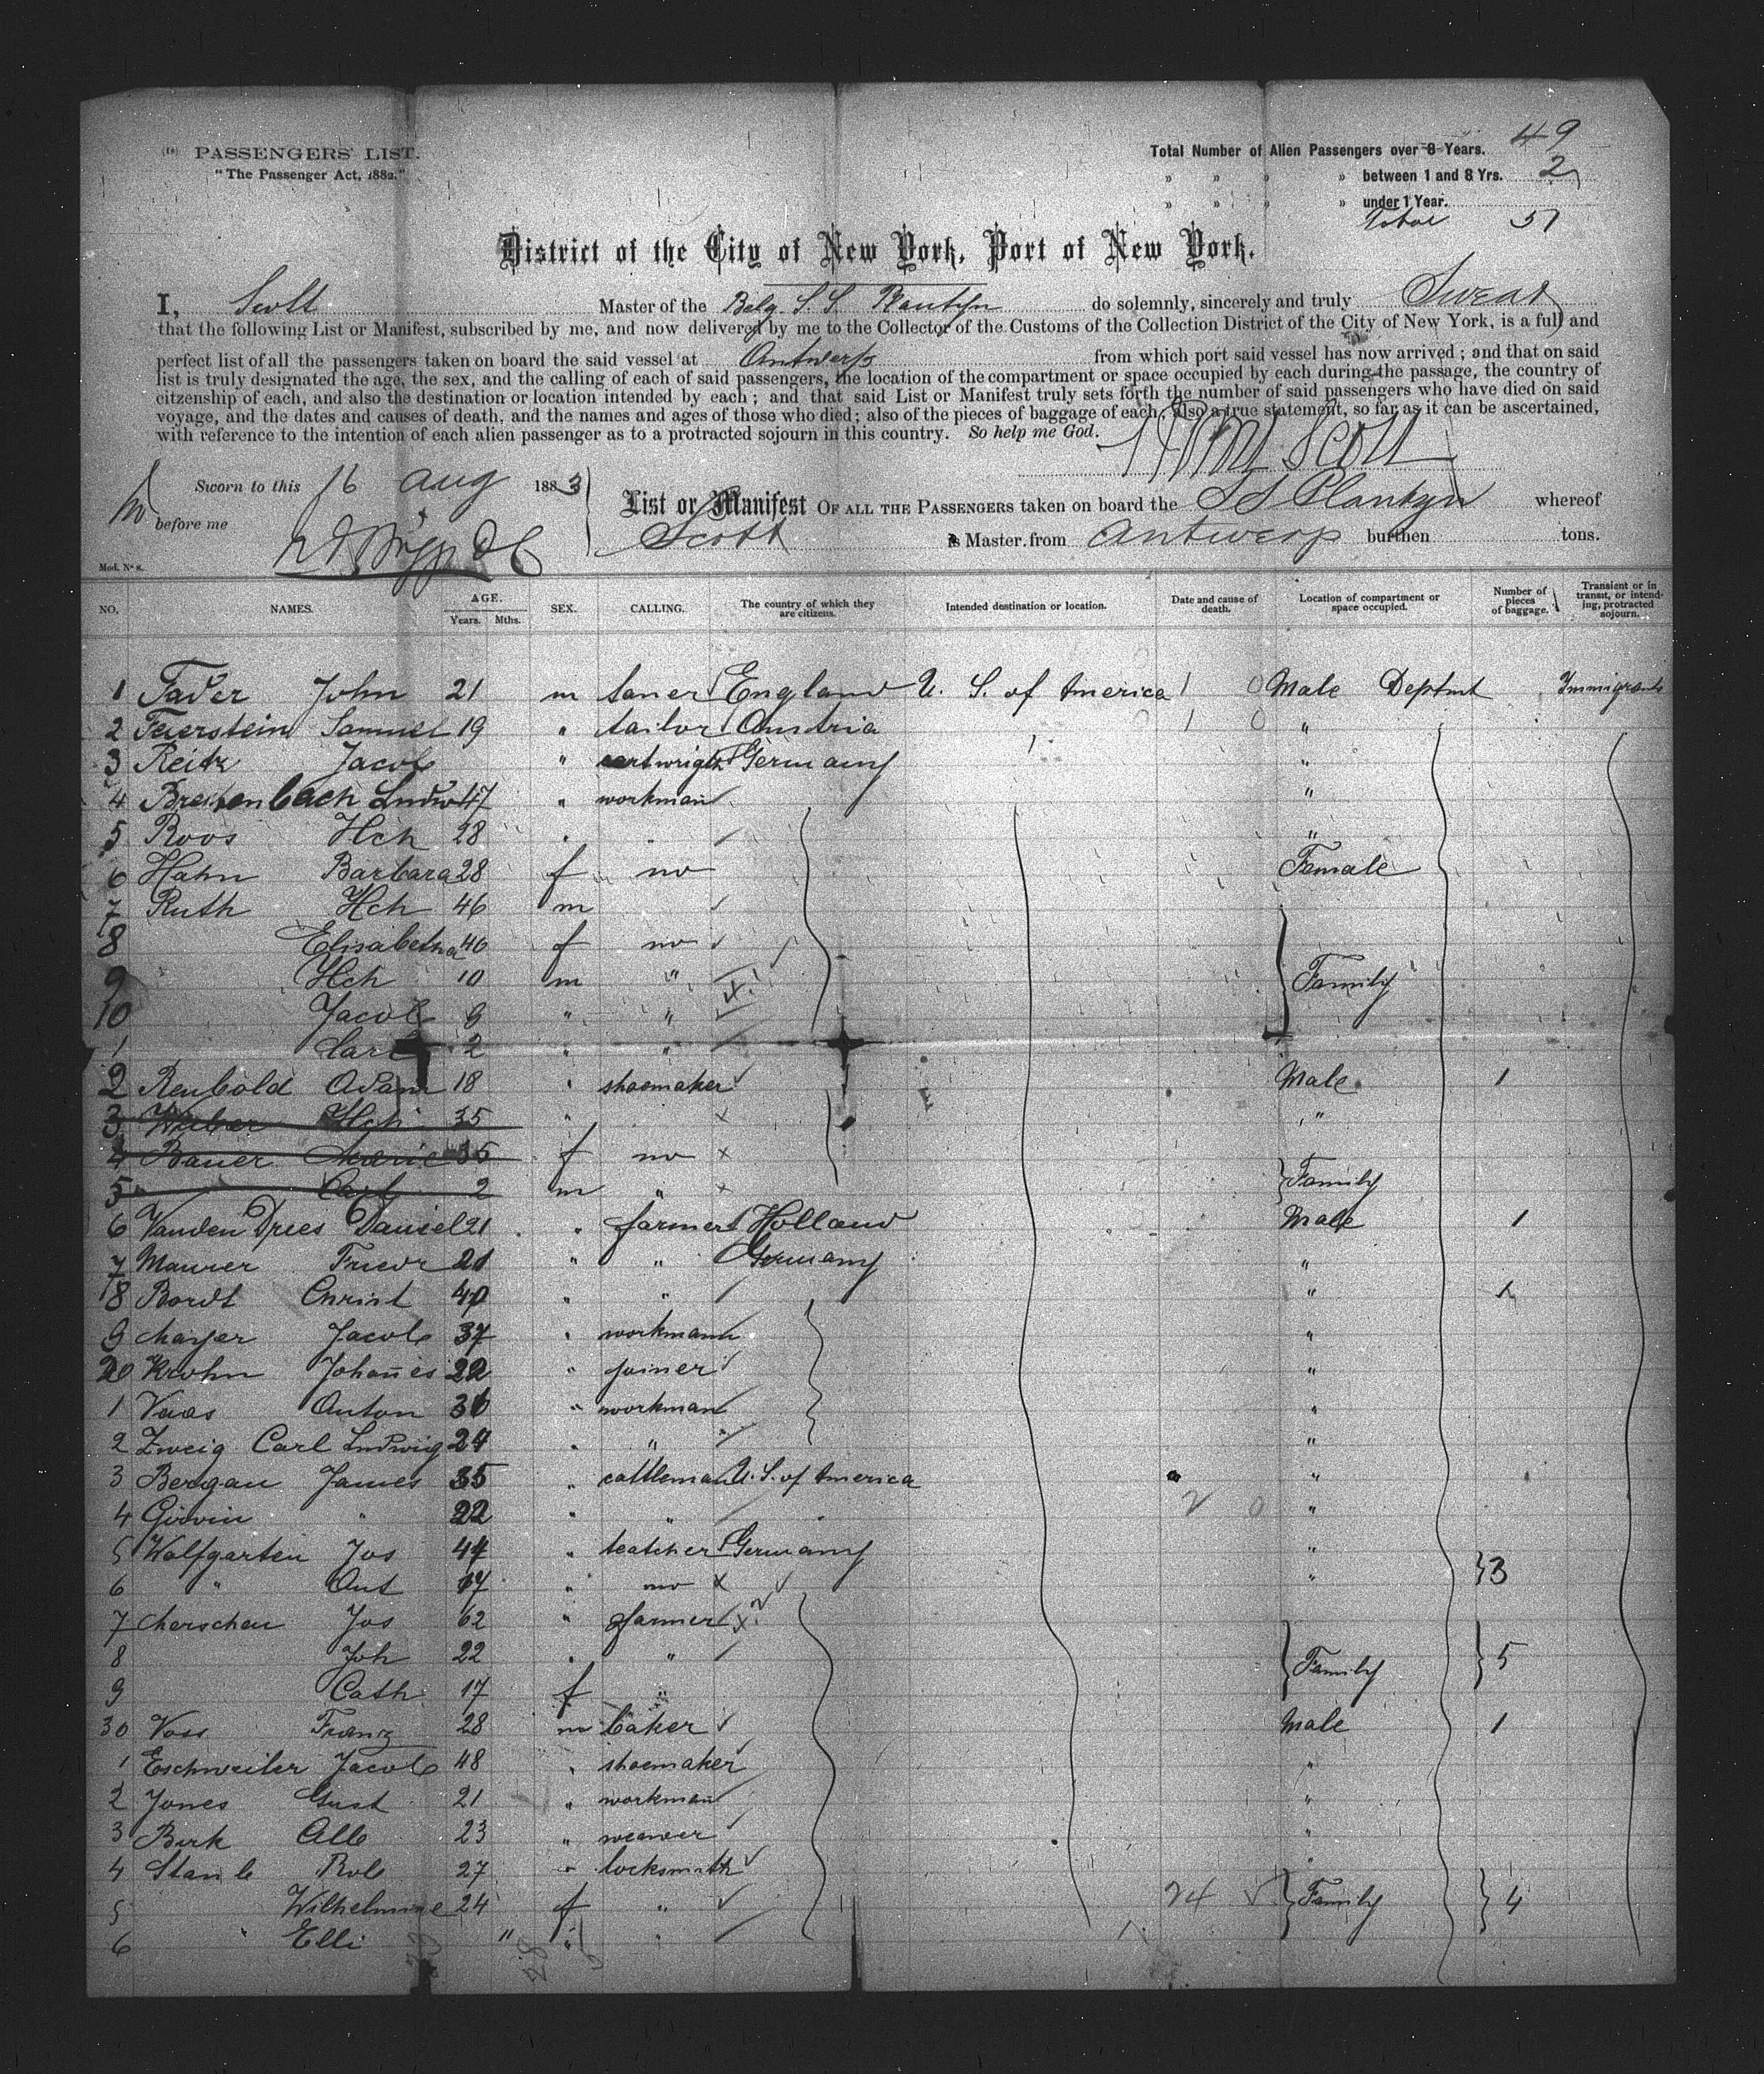 (18) PASSENGERS' LIST.
"The Passenger Act, 1882."
Total Number of Alien Passengers over 8 Years. 49
" " " " between 1 and 8 Yrs. 2
" " " " under 1 Year.
Total 51
District of the City of New York, Port of New York.
I, Scott Master of the Belg. S. S. Plantyn do solemnly, sincerely and truly Swear
that the following List or Manifest, subscribed by me, and now delivered by me to the Collector of the Customs of the Collection District of the City of New York, is a full and
perfect list of all the passengers taken on board the said vessel at Antwerp from which port said vessel has now arrived; and that on said
list is truly designated the age, the sex, and the calling of each of said passengers, the location of the compartment or space occupied by each during the passage, the country of
citzenship of each, and also the destination or location intended by each; and that said List or Manifest truly sets forth the number of said passengers who have died on said
voyage, and the dates and causes of death, and the names and ages of those who died; also of the pieces of baggage of each; also a true statement, so far as it can be ascertained,
with reference to the intention of each alien passenger as to a protracted sojourn in this country. So help me God.
Scott
Sworn to this 16 Aug 1883
before me
List or Manifest OF ALL THE PASSENGERS taken on board the S S Plantyn whereof
Scott is Master. from Antwerp burthen tons.
Mod. Nº 8.
NO. NAMES. AGE. Years. Mths. SEX. CALLING. The country of which they are citizens. Intended destination or location. Date and cause of death. Location of compartment or space occupied. Number of pieces of baggage. Transient or in transit, or intending, protracted sojourn.
1 Fader John 21 m taner England U. S. of America 1 0 Male Deptmt Immigrants
2 Feierstein Samuel 19 " tailor Austria 1 0 "
3 Reitz Jacob " cartwright Germany "
4 Breitenbach Ludw 47 " workman "
5 Roos Hch 28 " "
6 Hahn Barbara 28 f no Female
7 Ruth Hch 46 m
8 Elisabetha 46 f no
9 Hch 10 m " Family
10 Jacob 9 " "
1 Carl 2 " "
2 Reubold Adam 18 " shoemaker Male 1
3 Weber Hch 35 " "
4 Bauer Marie 35 f no
5 " Carl 2 m " Family
6 Vanden Dries Daniel 21 " farmer Holland Male 1
7 Maurer Friedr 21 " " Germany "
18 Bordt Christ 40 " " " 1
9 Mayer Jacob 37 " workmann "
20 Krohn Johañes 22 " joiner "
1 Vaas Anton 36 " workman "
2 Zweig Carl Ludwig 24 " " "
3 Bergan James 35 " cattleman U. S. of America "
4 Girvin " 22 " " 2 0 "
5 Wolfgarten Jos 44 " teatcher Germany "
6 " Ant 17 " no " 3
7 Merschen Jos 62 " farmer
8 Joh 22 " " Family 5
9 Cath 17 f "
30 Voss Franz 28 m baker Male 1
1 Eschweiler Jacob 48 " shoemaker "
2 Jones Gust 21 " workman "
3 Birk Alb 23 " weawer "
4 Stamb Rob 27 " locksmith "
5 Wilhelmine 24 f " 24 Family 4
6 " Elli " " "
28